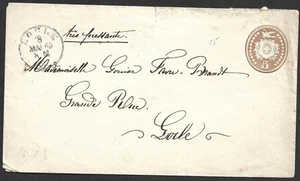 LOCLE
8
très pressante.
15
Mademoiselle Louise Favre-Brandt
Grande Rue
Locle